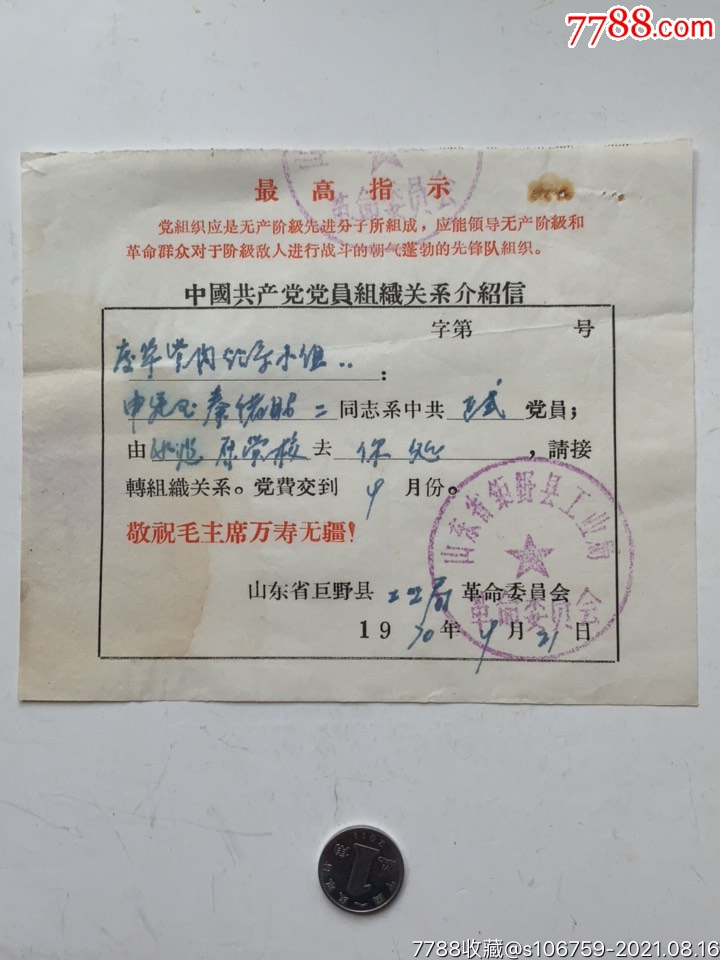 7788.com
革命委員会
最高指示
党組织应是无产阶級先进分子所組成，应能领导无产阶級和
革命群众对于阶級敌人进行战斗的朝气蓬勃的先锋队組织。
中國共产党党員組織关系介紹信
字第 号
小组：
二同志系中共 正式 党員；
由 党校 去 ，請接
轉組織关系。党費交到 4 月份。
敬祝毛主席万寿无疆！
山东省巨野县 工业局 革命委員会
1970年4月21日
山东省鉅野县工业局
革命委员会
7788收藏@s106759-2021.08.16